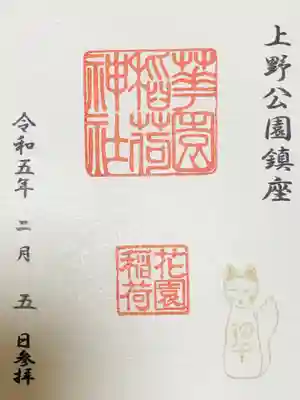 上野公園鎮座
華園
稲荷
神社
花園
稲荷
令和五年二月五日参拝